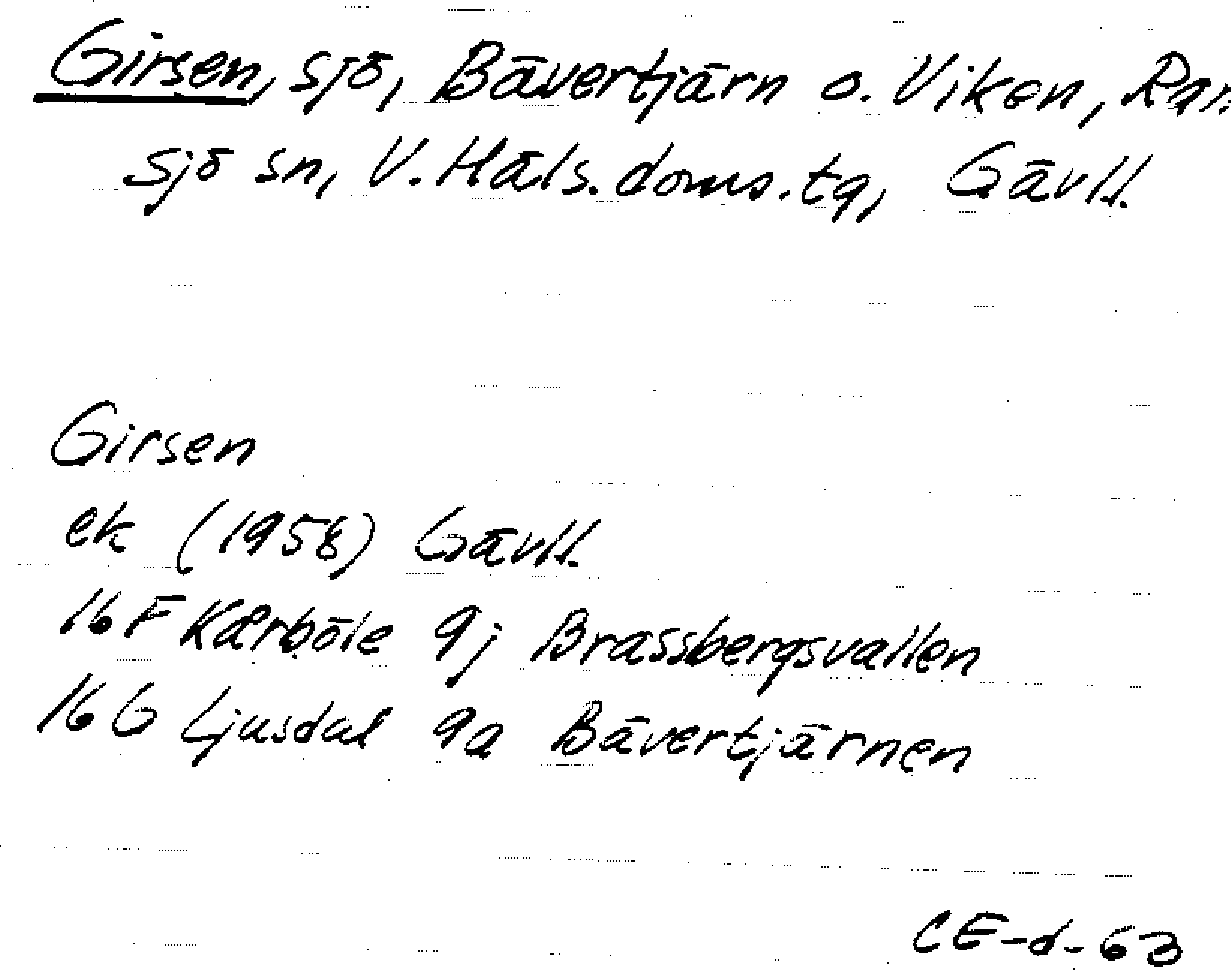 Girsen, sjö, Bävertjärn o. Viken, Ram
sjö sn, V. Häls. doms. tg, Gävll.
Girsen
ek (1958) Gävll.
16 F Kårböle 9j Brassbergsvallen
16 G Ljusdal 9a Bävertjärnen
CE-d-63